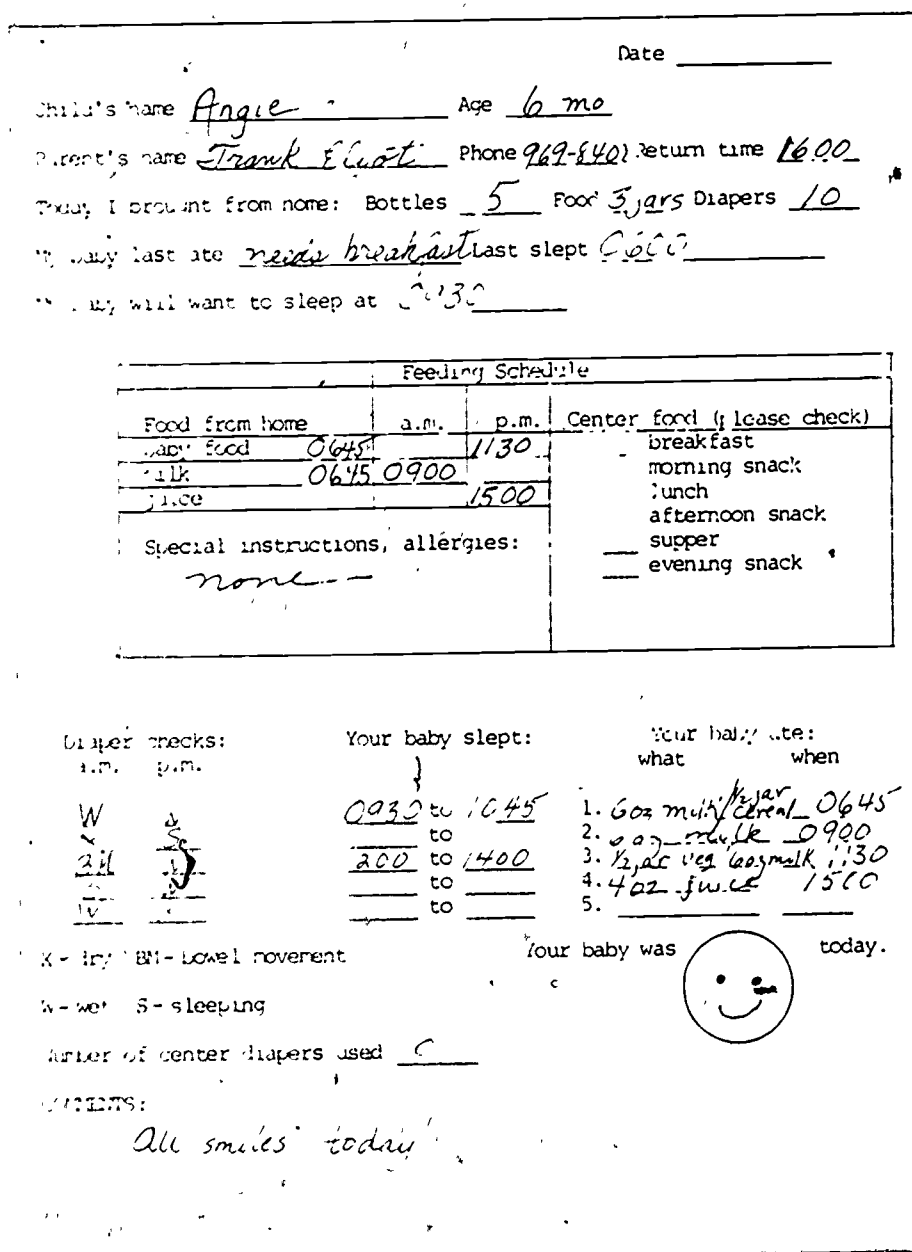 Date
Child's name Angie Age 6 mo
Parent's name Frank Eliot Phone 969-8401 Return time 1600
Today I brought from home: Bottles 5 Food 3 jars Diapers 10
My baby last ate needs breakfast Last slept 0600
My baby will want to sleep at
Feeding Schedule
Food from home a.m. p.m. Center food (please check)
baby food 0645 1130 breakfast
milk 0645 0900 morning snack
juice 1500 lunch
afternoon snack
Special instructions, allergies: supper
none evening snack
Diaper checks: Your baby slept: Your baby ate:
a.m. p.m. what when
W 0930 to 1045 1. 6oz milk/ 1/2 jar cereal 0645
to 2. milk 0900
200 to 1400 3. 1/2 jar veg 6oz milk 1130
to 4. 4oz juice 1500
W to 5.
X - dry BM - bowel movement Your baby was today.
W - wet S - sleeping
Number of center diapers used
COMMENTS:
All smiles today